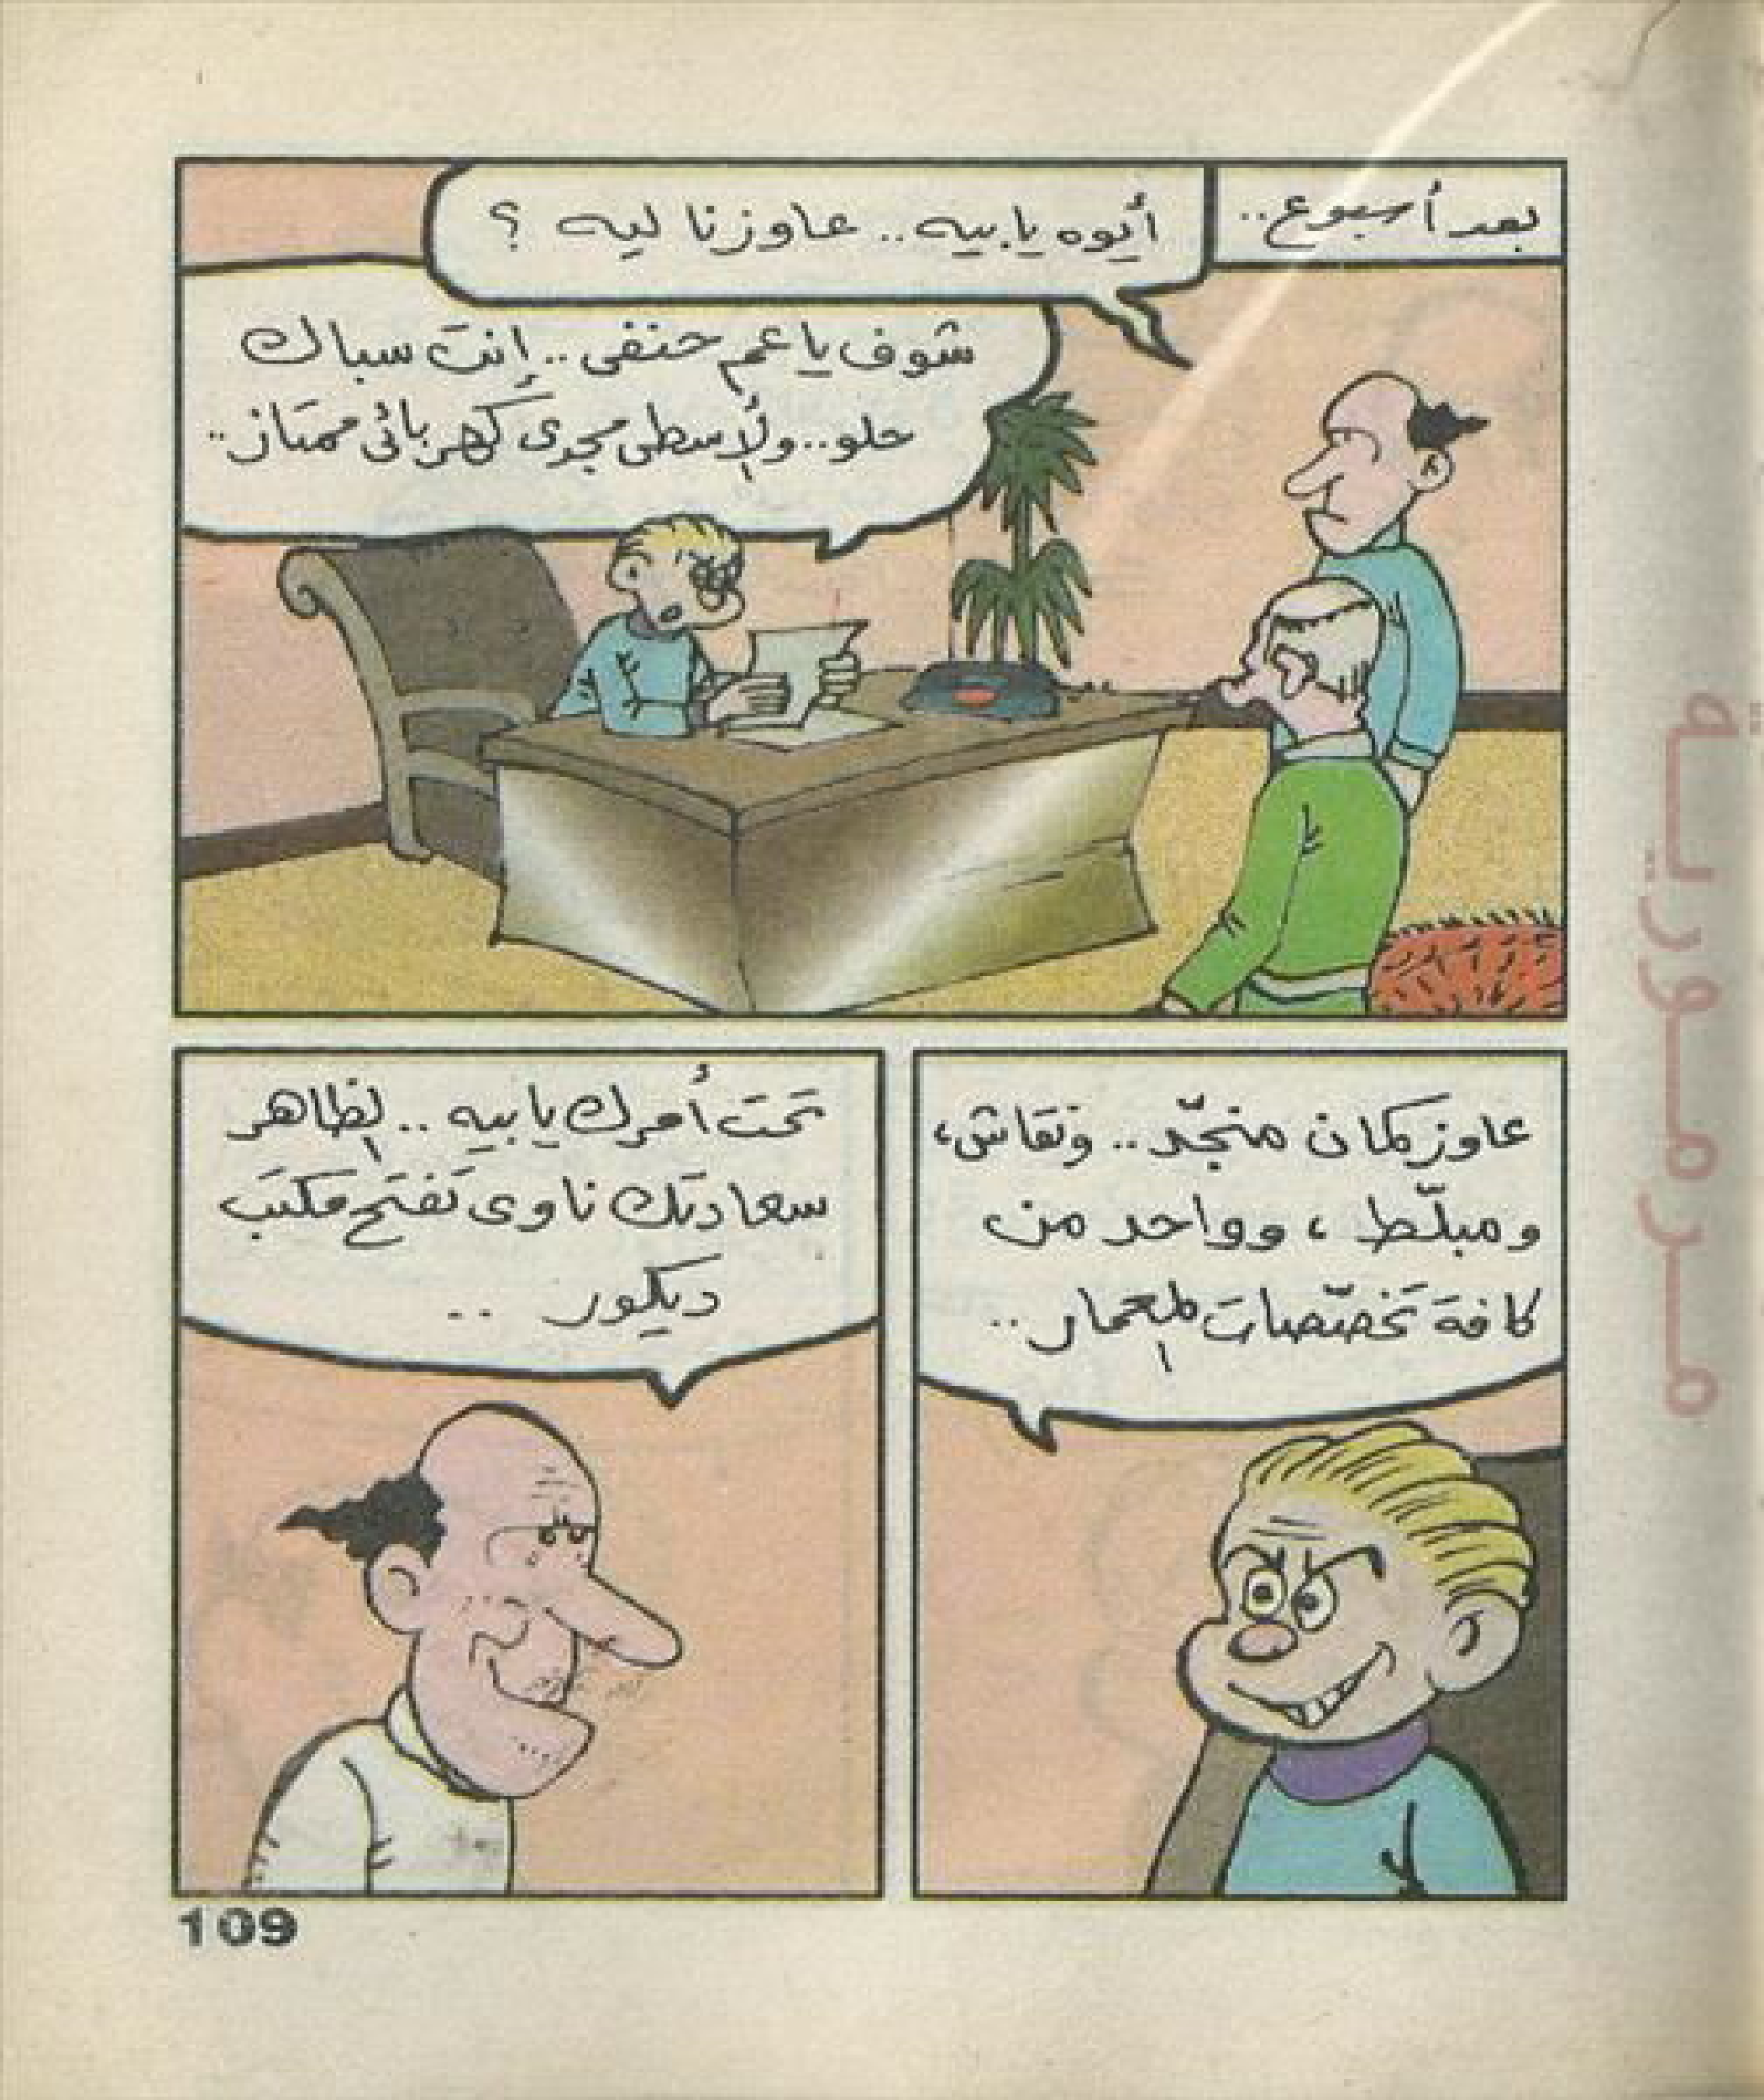 بعد أسبوع..
أيوه يا بيه.. عاوزنا ليه ؟
شوف يا عم حنفى .. إنت سباك
حلو.. والأسطى مجدى كهربائى ممتاز..
عاوز كمان منجّد.. ونقاش،
ومبلّط ، وواحد من
كافة تخصّصات المعمار..
تحت أمرك يا بيه .. الظاهر
سعادتك ناوى تفتح مكتب
ديكور ..
109
مرمورية